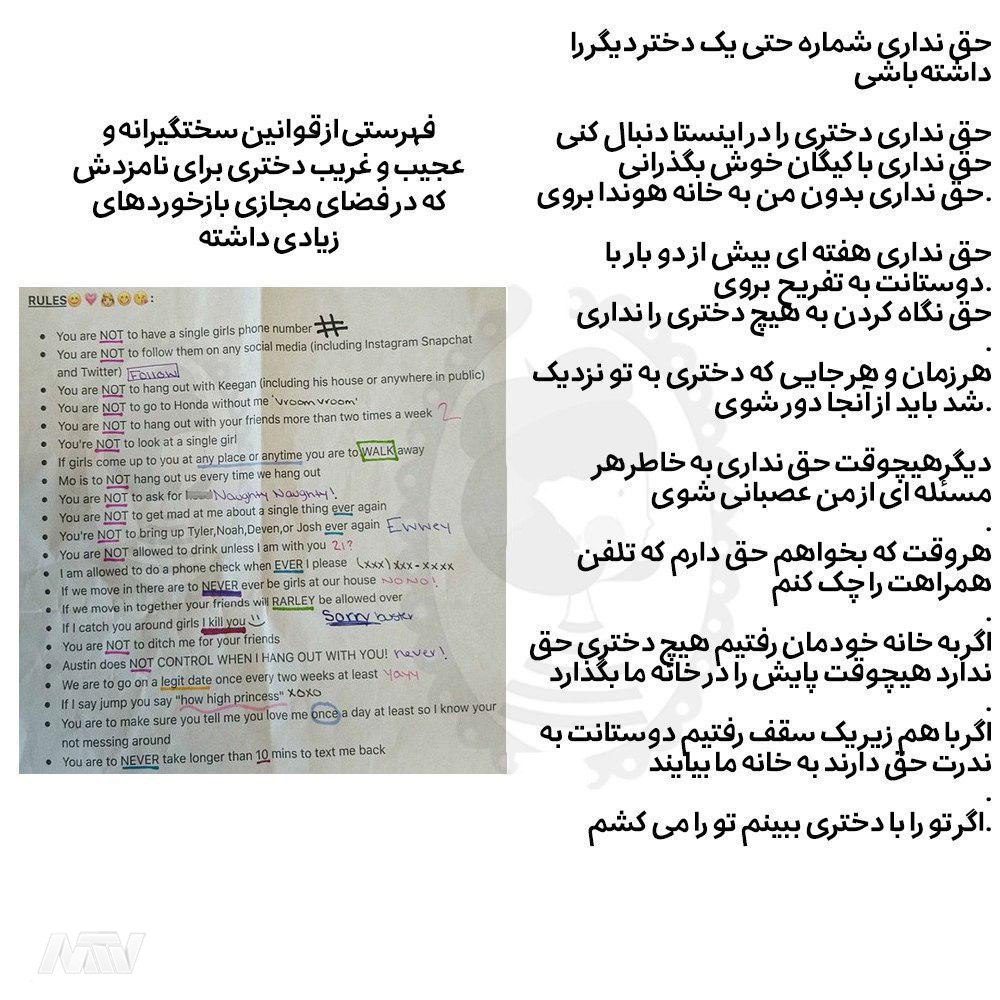 حق نداری شماره حتی یک دختر دیگر را
داشته باشی
حق نداری دختری را در اینستا دنبال کنی
حق نداری با کیگان خوش بگذرانی
.حق نداری بدون من به خانه هوندا بروی
حق نداری هفته ای بیش از دو بار با
.دوستانت به تفریح بروی
حق نگاه کردن به هیچ دختری را نداری
.
هرزمان و هر جایی که دختری به تو نزدیک
.شد باید از آنجا دور شوی
دیگرهیچوقت حق نداری به خاطر هر
مسئله ای از من عصبانی شوی
.
هروقت که بخواهم حق دارم که تلفن
همراهت را چک کنم
.
اگر به خانه خودمان رفتیم هیچ دختری حق
ندارد هیچوقت پایش را در خانه ما بگذارد
.
اگر با هم زیر یک سقف رفتیم دوستانت به
ندرت حق دارند به خانه ما بیایند
.
.اگر تو را با دختری ببینم تو را می کشم
فهرستی از قوانین سختگیرانه و
عجیب و غریب دختری برای نامزدش
که در فضای مجازی بازخوردهای
زیادی داشته
RULES😊💗👸😋😘:
• You are NOT to have a single girls phone number #
• You are NOT to follow them on any social media (including Instagram Snapchat
and Twitter) FOLLOW
• You are NOT to hang out with Keegan (including his house or anywhere in public)
• You are NOT to go to Honda without me 'vroom vroom'
• You are NOT to hang out with your friends more than two times a week 2
• You're NOT to look at a single girl
• If girls come up to you at any place or anytime you are to WALK away
• Mo is to NOT hang out us every time we hang out
• You are NOT to ask for Naughty Naughty!
• You are NOT to get mad at me about a single thing ever again
• You're NOT to bring up Tyler,Noah,Deven,or Josh ever again Ewwey
• You are NOT allowed to drink unless I am with you 21?
• I am allowed to do a phone check when EVER I please (xxx)xxx-xxxx
• If we move in there are to NEVER ever be girls at our house NONO!
• If we move in together your friends will RARLEY be allowed over
• If I catch you around girls I kill you :) Sorry buster
• You are NOT to ditch me for your friends
• Austin does NOT CONTROL WHEN I HANG OUT WITH YOU! never!
• We are to go on a legit date once every two weeks at least yayy
• If I say jump you say "how high princess" xoxo
• You are to make sure you tell me you love me once a day at least so I know your
not messing around
• You are to NEVER take longer than 10 mins to text me back
MTV